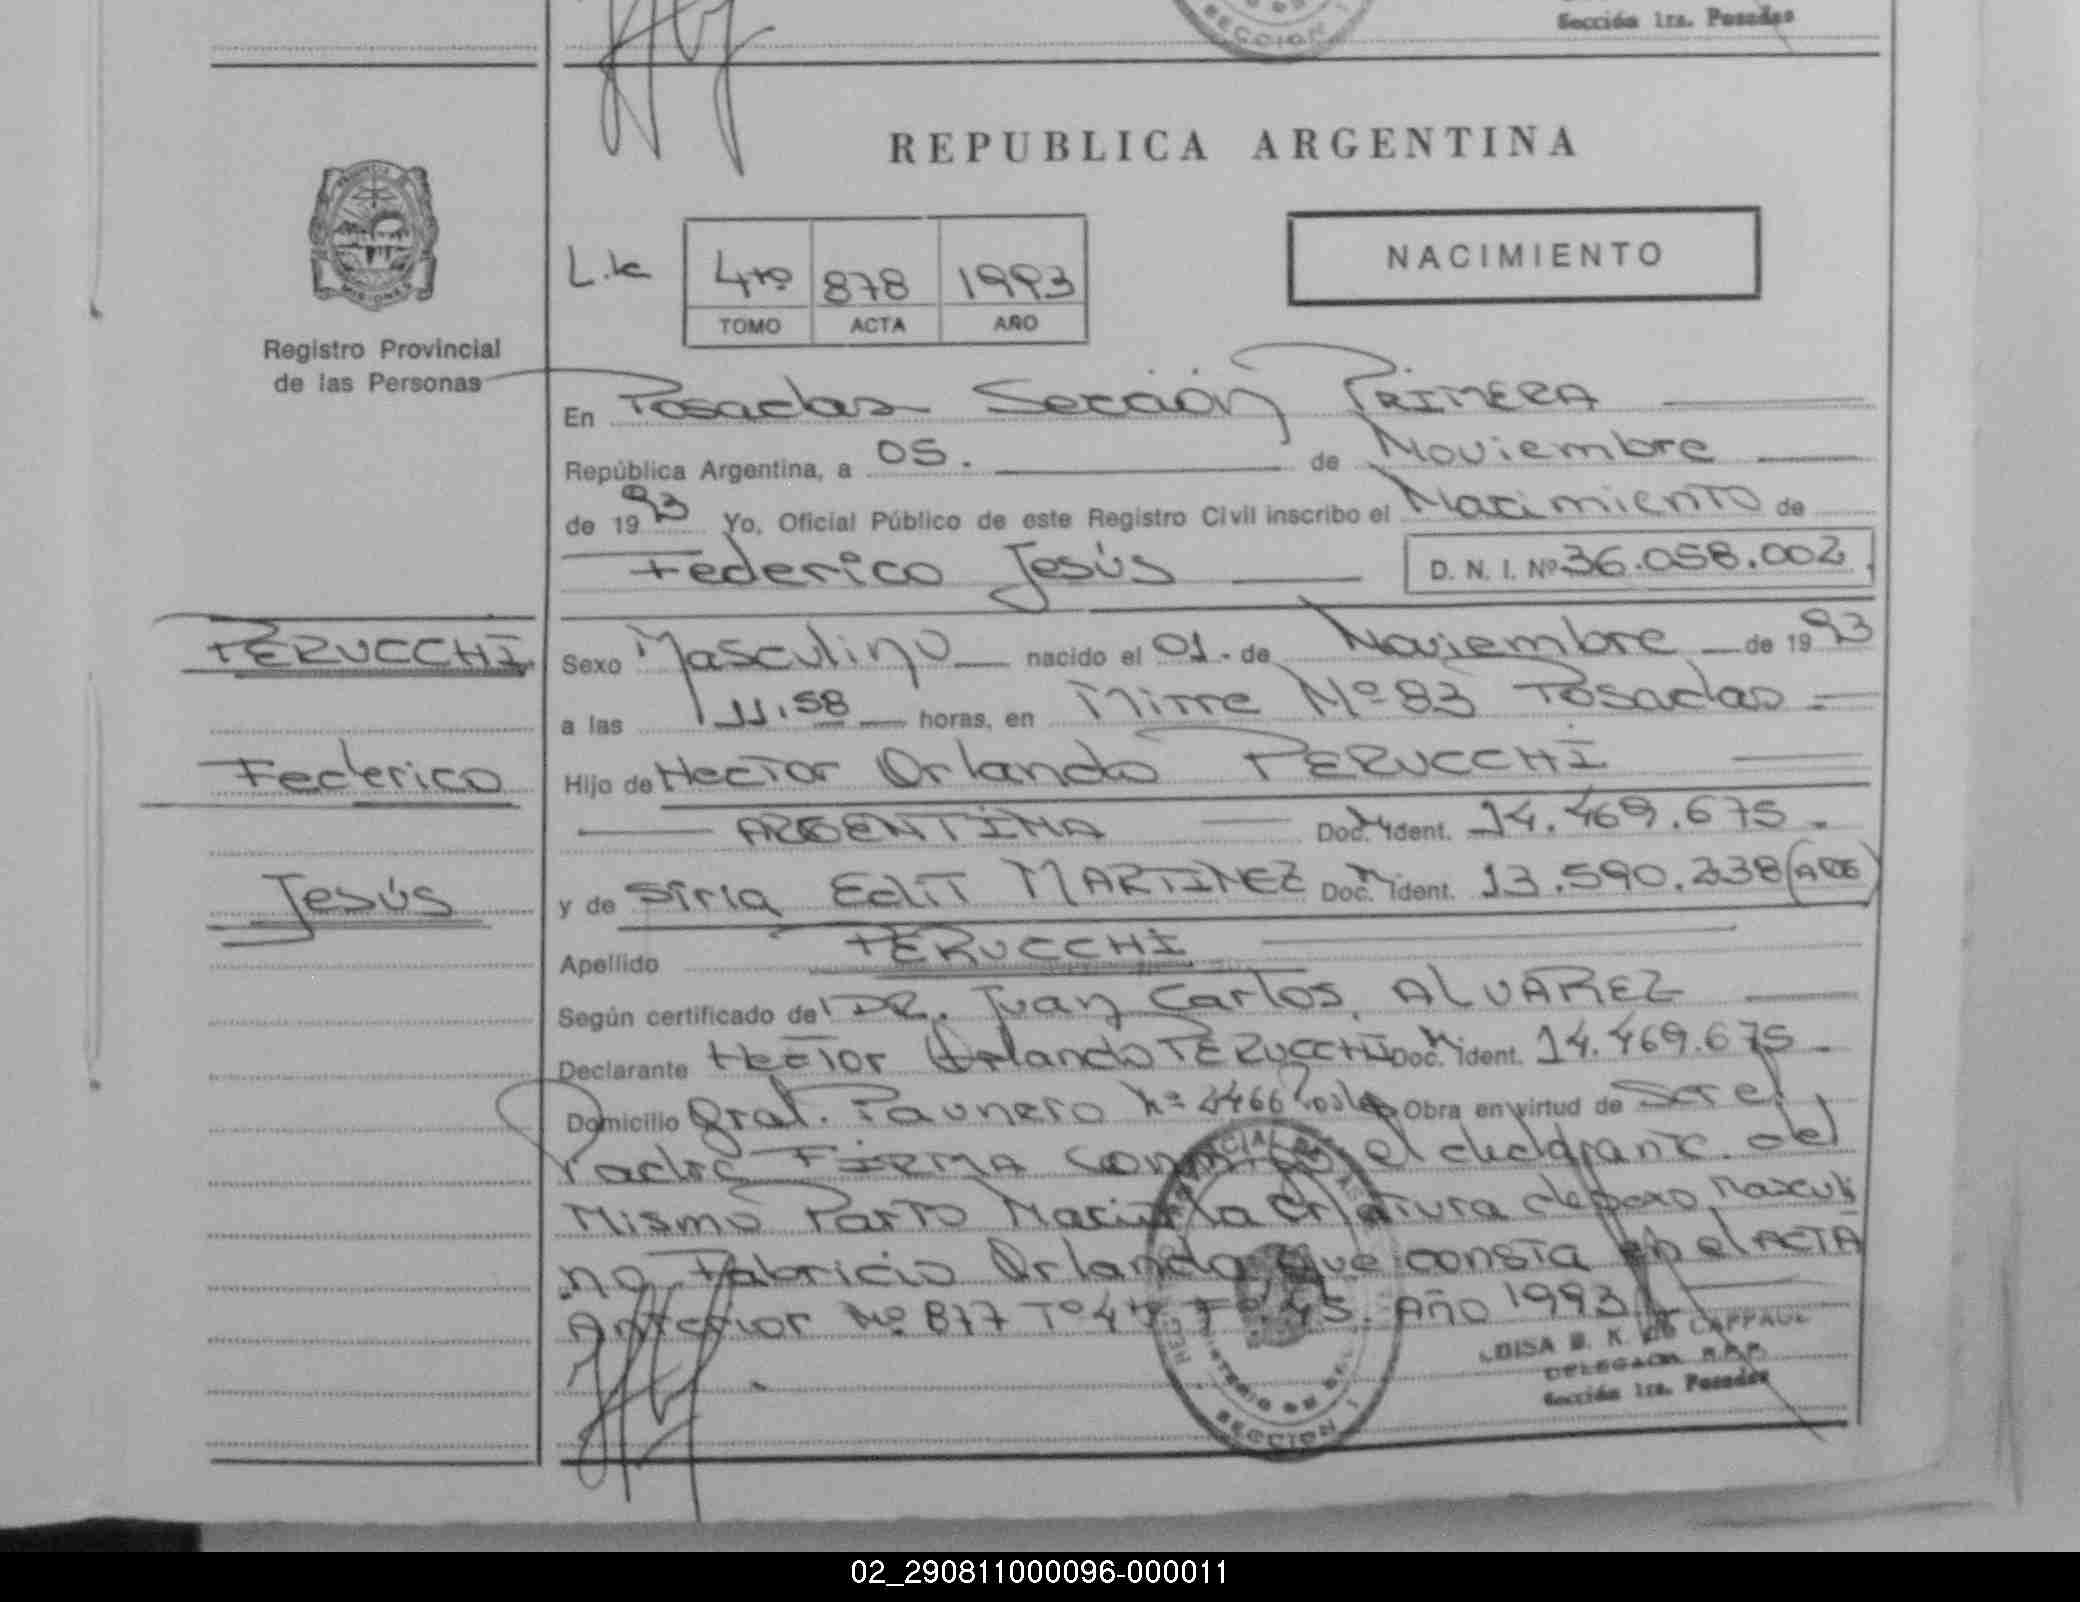 SECCION 1
Sección 1ra. Posadas
REPUBLICA ARGENTINA
MISIONES
Registro Provincial
de las Personas
4to 878 1993
TOMO ACTA AÑO
NACIMIENTO
En Posadas Sección PRIMERA
República Argentina, a 05. de Noviembre
de 1993 Yo, Oficial Público de este Registro Civil inscribo el Nacimiento de
Federico Jesús D. N. I. Nº 36.058.002
PERUCCHI
Federico
Jesús
Sexo Masculino nacido el 01. de Noviembre de 1993
a las 11,58 horas, en Mitre Nº 83 Posadas
Hijo de Hector Orlando PERUCCHI
ARGENTINA Doc. Ident. 14.469.675.
y de Siria Edit MARTINEZ Doc. Ident. 13.590.238 (ARG)
Apellido PERUCCHI
Según certificado del DR. Juan Carlos ALVAREZ
Declarante Hector Orlando PERUCCHI Doc. Ident. 14.469.675.
Domicilio Gral. Paunero Nº 4466 Posadas Obra en virtud de Ser el
Padre FIRMA conmigo el declarante. del
Mismo Parto Nació la Criatura de sexo Masculi
no Fabricio Orlando que consta en el ACTA
Anterior Nº 877 Tº 4to Fº 45. Año 1993
DELEGADA R.P.P.
Sección 1ra. Posadas
SECCION 1
02_290811000096-000011